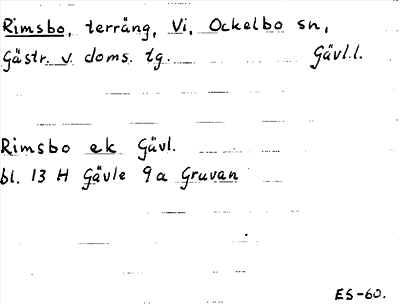 Rimsbo, terräng, Vi, Ockelbo sn,
Gästr. v. doms. tg. Gävl.l.
Rimsbo ek Gävl.
bl. 13 H Gävle 9a Gruvan
ES-60.